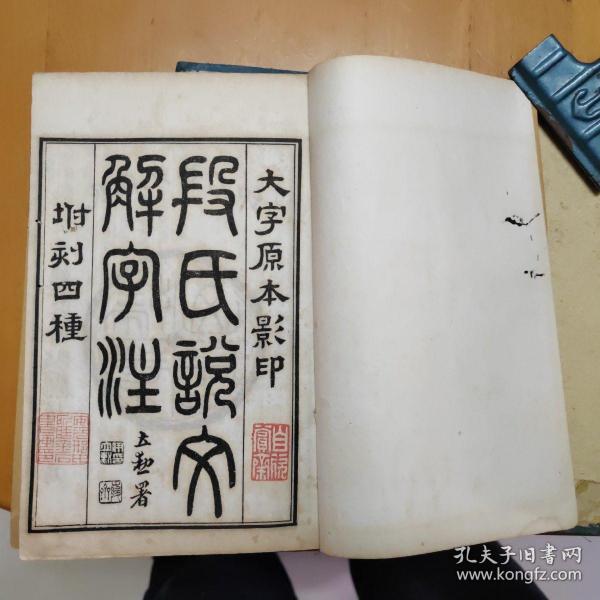 大字原本影印
段氏說文
解字注
坿刻四種
孔夫子旧书网
www.kongfz.com